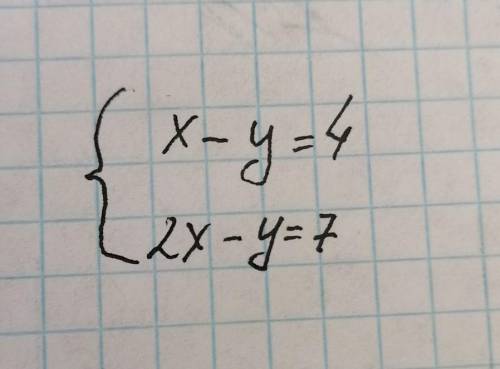 x - y = 4
2x - y = 7